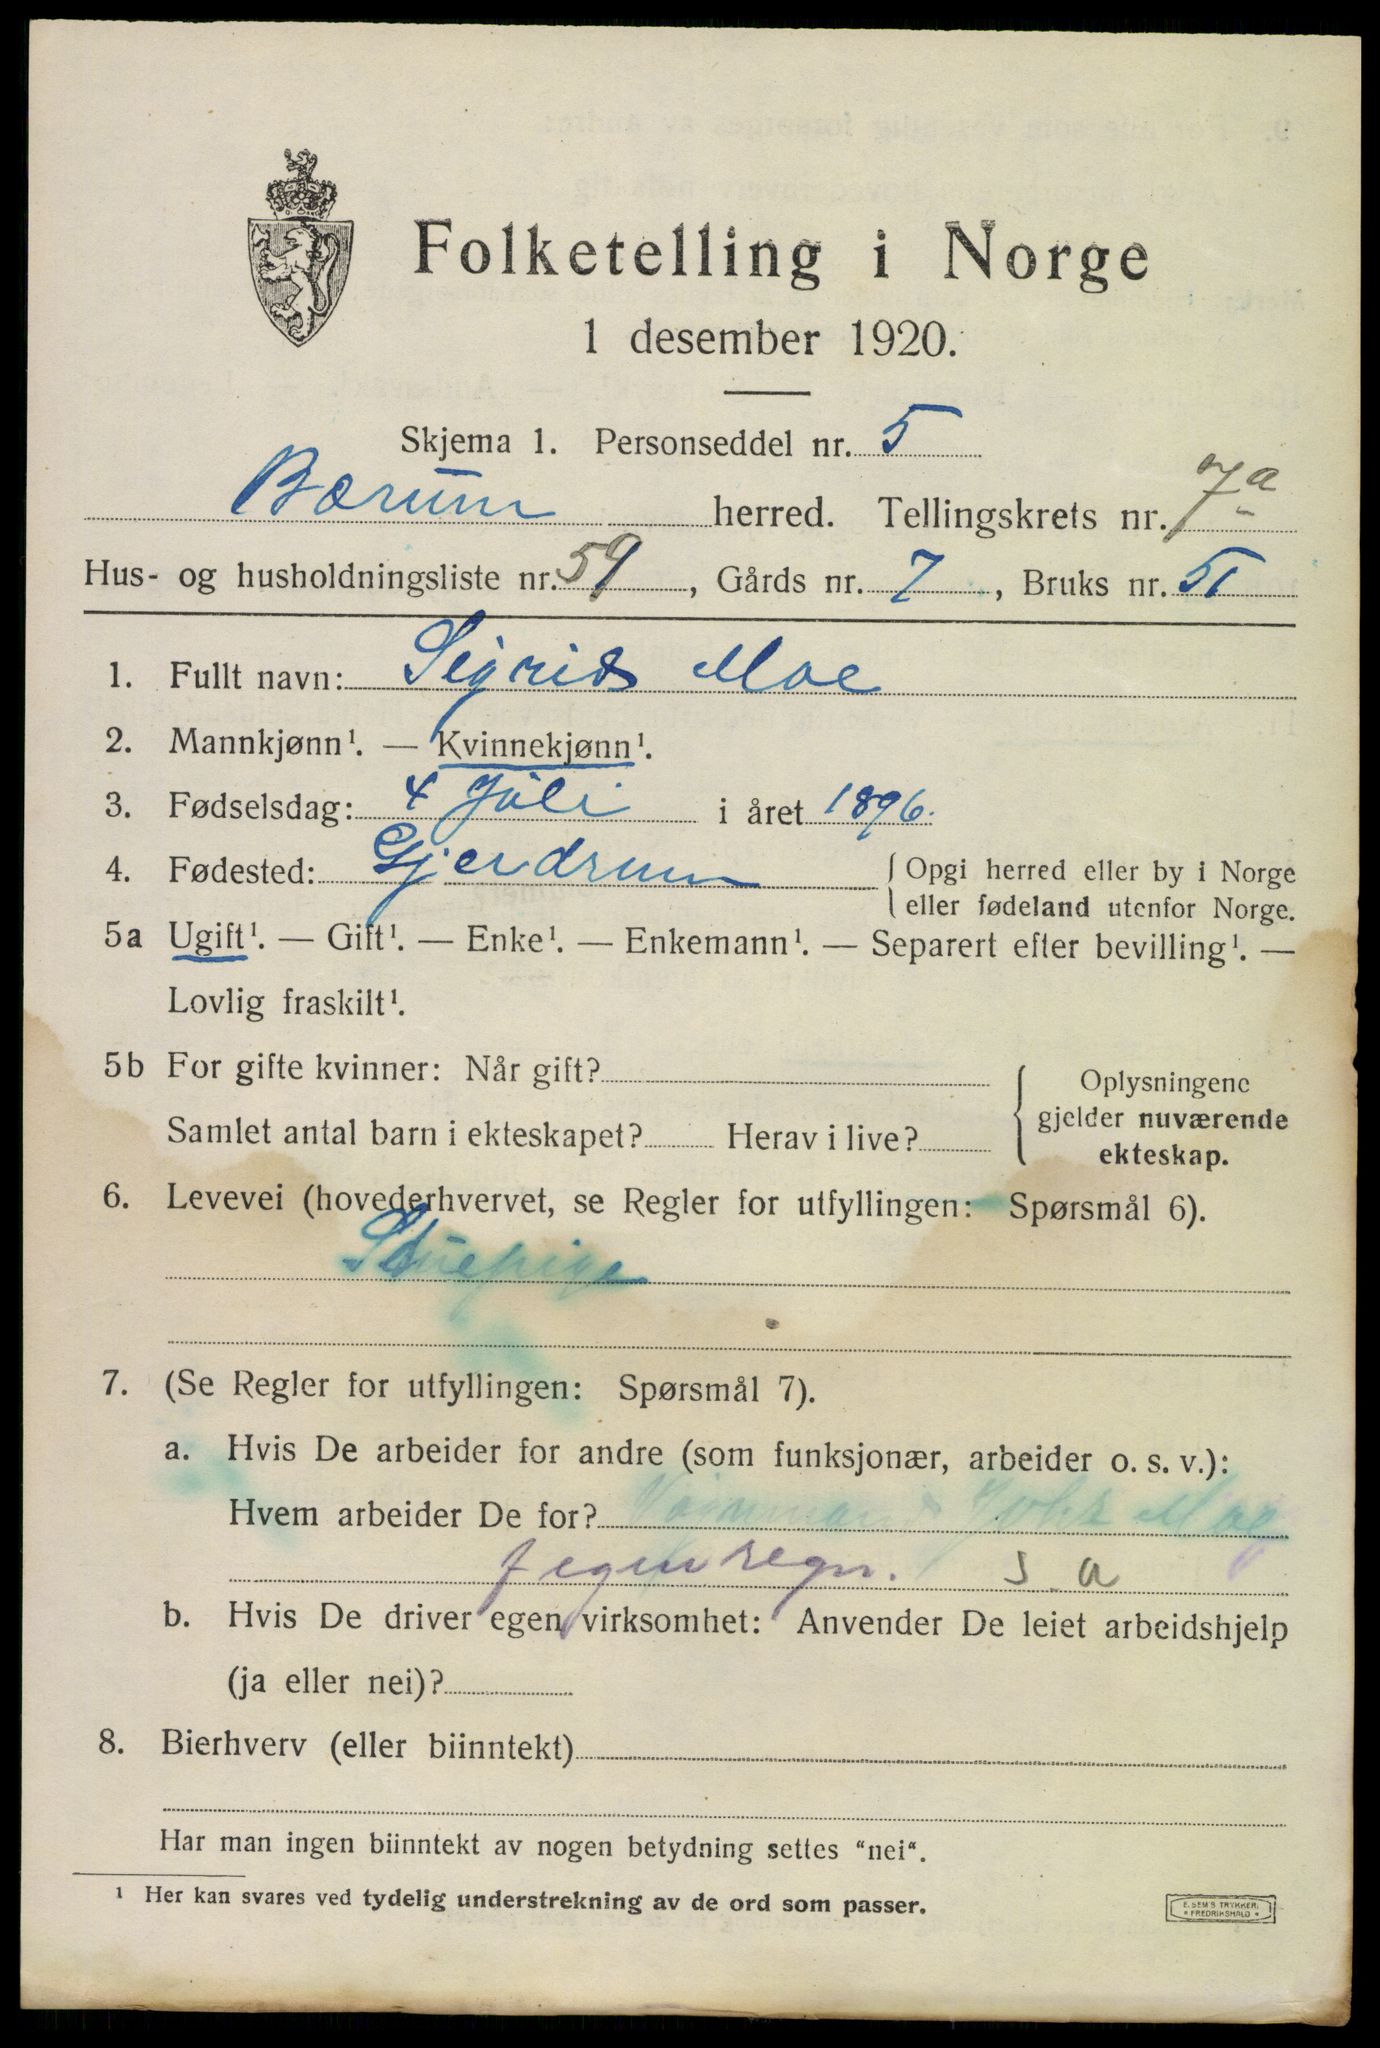 Folketelling i Norge
1 desember 1920.
Skjema 1. Personseddel nr. 5
Bærum herred. Tellingskrets nr. 7a
Hus- og husholdningsliste nr. 59, Gårds nr. 7, Bruks nr. 51
1. Fullt navn: Sigrid Moe
2. Mannkjønn¹. — Kvinnekjønn¹.
3. Fødselsdag: 4 Juli i året 1896.
4. Fødested: Gjerdrum { Opgi herred eller by i Norge
eller fødeland utenfor Norge.
5a Ugift¹. — Gift¹. — Enke¹. — Enkemann¹. — Separert efter bevilling¹. —
Lovlig fraskilt¹.
5b For gifte kvinner: Når gift?
Samlet antal barn i ekteskapet? Herav i live?
Oplysningene
gjelder nuværende
ekteskap.
6. Levevei (hovederhvervet, se Regler for utfyllingen: Spørsmål 6).
Stuepige
7. (Se Regler for utfyllingen: Spørsmål 7).
a. Hvis De arbeider for andre (som funksjonær, arbeider o. s. v.):
Hvem arbeider De for?
s a
b. Hvis De driver egen virksomhet: Anvender De leiet arbeidshjelp
(ja eller nei)?
8. Bierhverv (eller biinntekt)
Har man ingen biinntekt av nogen betydning settes "nei".
¹ Her kan svares ved tydelig understrekning av de ord som passer.
E. SEM'S TRYKKERI
* FREDRIKSHALD *